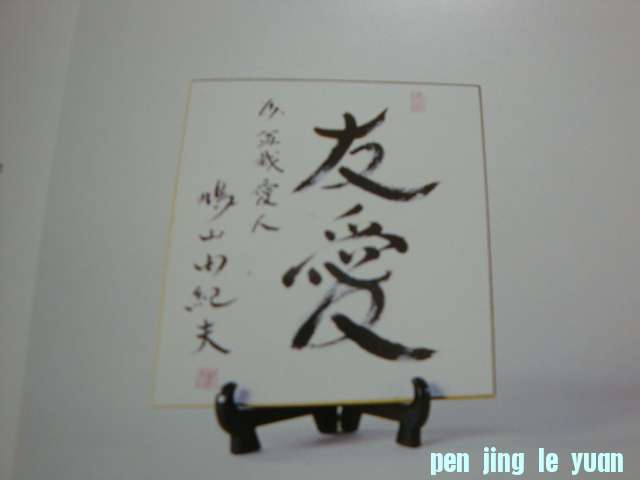 友愛
盆栽愛人
鳩山由紀夫
pen jing le yuan